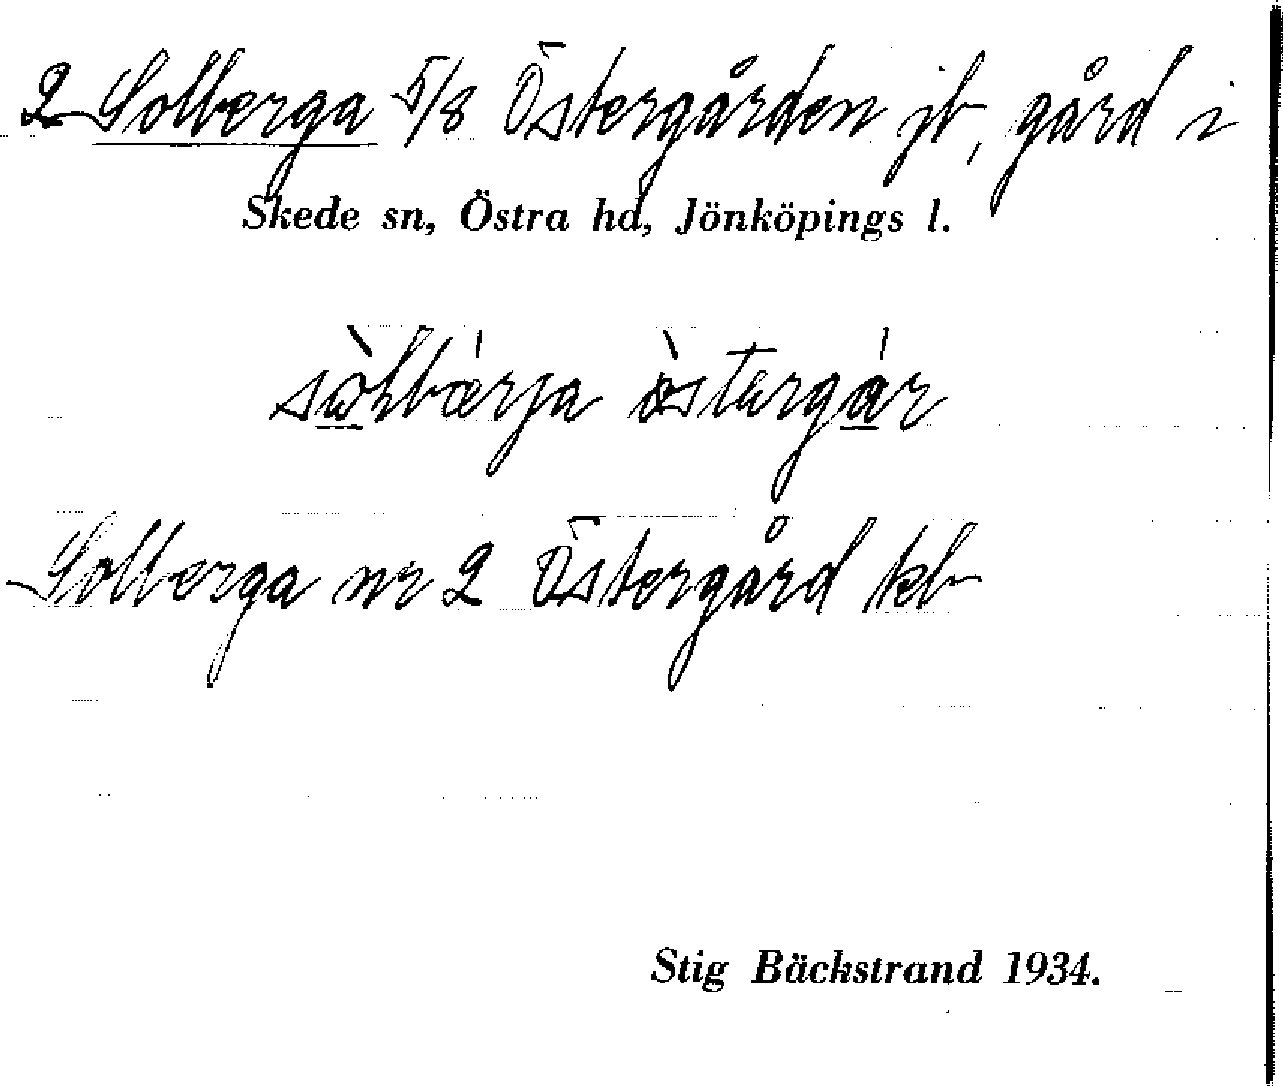 2 Solberga 5/8 Östergården jb, gård i
Skede sn, Östra hd, Jönköpings l.
östergår
Solberga nr 2 Östergård kb
Stig Bäckstrand 1934.